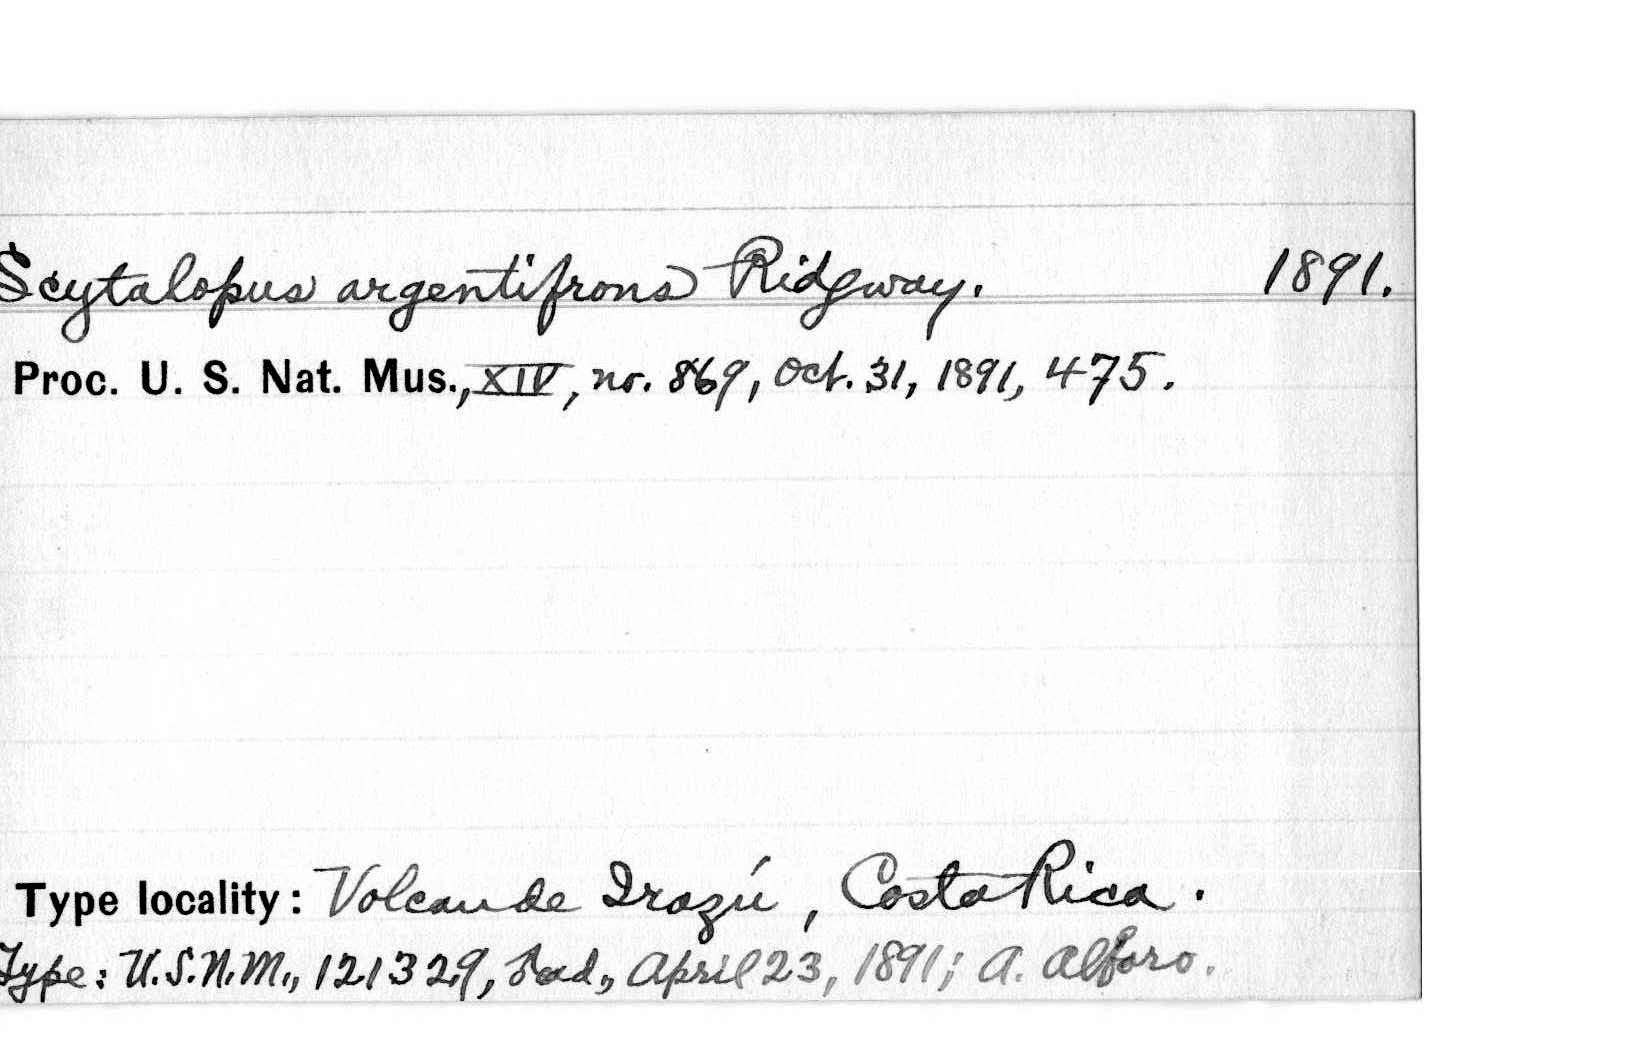 Scytalopus argentifrons Ridgway. 1891.
Proc. U. S. Nat. Mus., XIV, no. 869, Oct. 31, 1891, 475.
Type locality: Volcan de Irazú, Costa Rica.
Type: U.S.N.M., 121329, ad., April 23, 1891; A. Alfaro.